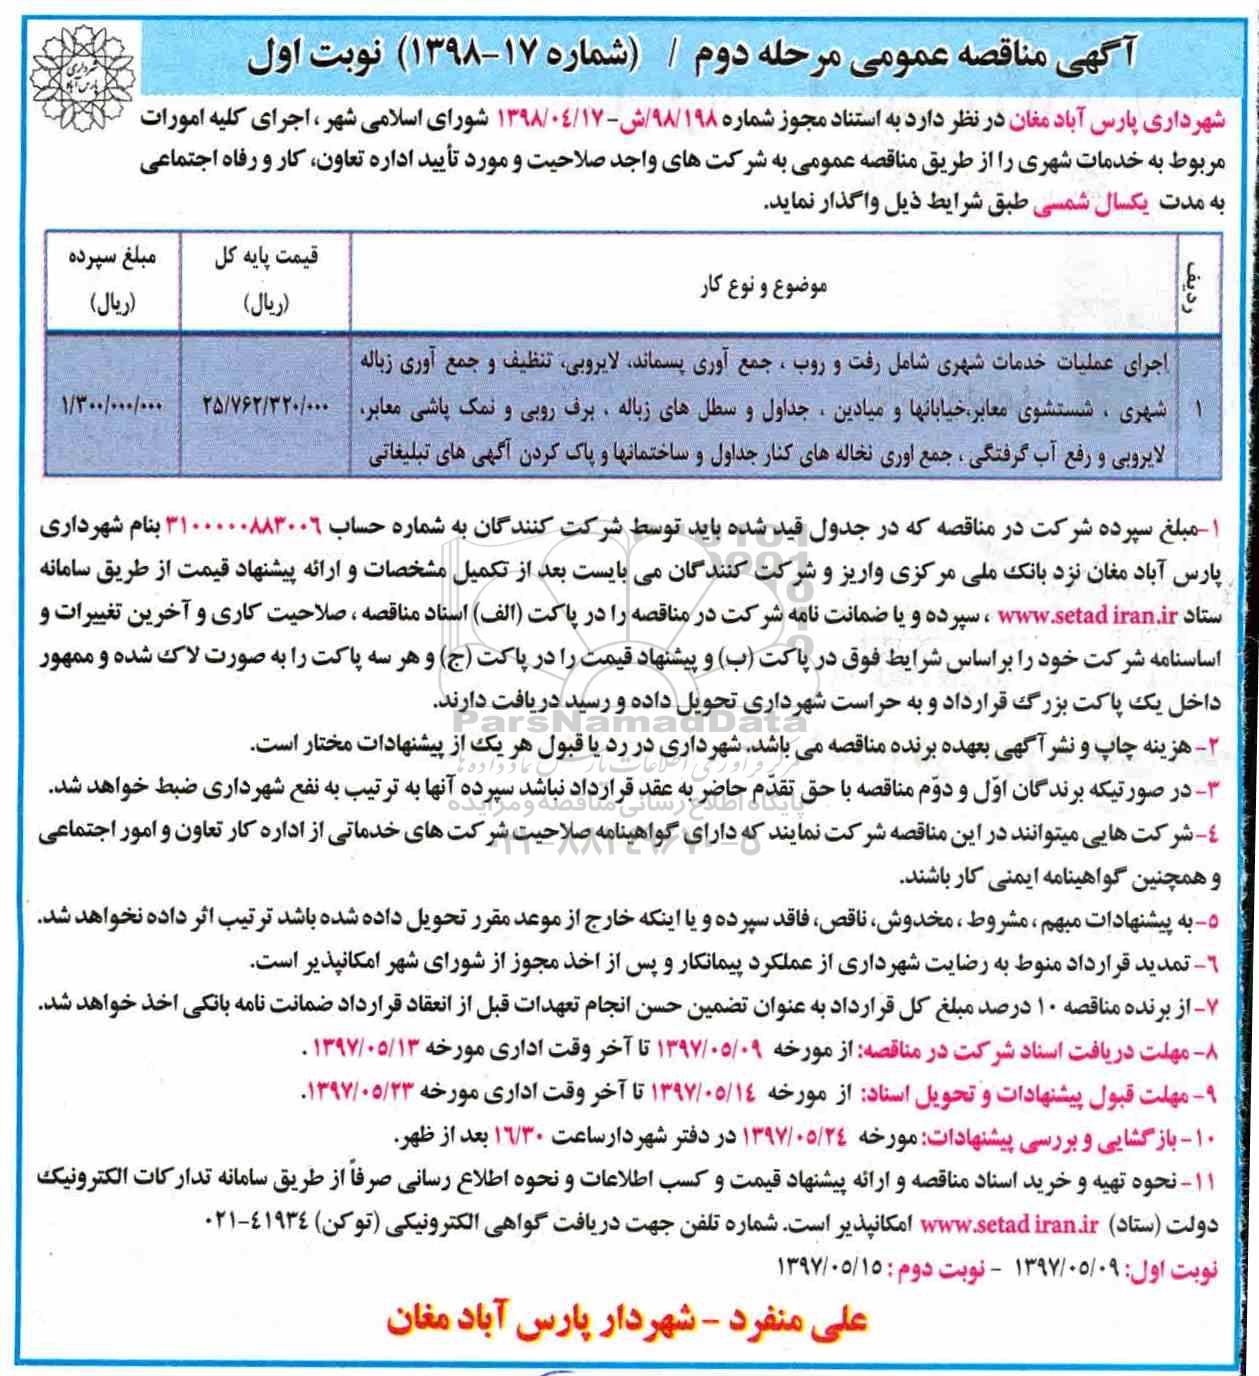 شهرداری پارس آباد
آگهی مناقصه عمومی مرحله دوم / (شماره ۱۷-۱۳۹۸) نوبت اول
شهرداری پارس آباد مغان در نظر دارد به استناد مجوز شماره ۹۸/۱۹۸/ش-۱۳۹۸/۰۴/۱۷ شورای اسلامی شهر، اجرای کلیه امورات
مربوط به خدمات شهری را از طریق مناقصه عمومی به شرکت های واجد صلاحیت و مورد تأیید اداره تعاون، کار و رفاه اجتماعی
به مدت یکسال شمسی طبق شرایط ذیل واگذار نماید.
ردیف | موضوع و نوع کار | قیمت پایه کل (ریال) | مبلغ سپرده (ریال)
اجرای عملیات خدمات شهری شامل رفت و روب ، جمع آوری پسماند، لایروبی، تنظیف و جمع آوری زباله
۱ | شهری ، شستشوی معابر،خیابانها و میادین ، جداول و سطل های زباله ، برف روبی و نمک پاشی معابر، | ۲۵/۷۶۲/۳۲۰/۰۰۰ | ۱/۳۰۰/۰۰۰/۰۰۰
لایروبی و رفع آب گرفتگی ، جمع اوری نخاله های کنار جداول و ساختمانها و پاک کردن آگهی های تبلیغاتی
۱-مبلغ سپرده شرکت در مناقصه که در جدول قید شده باید توسط شرکت کنندگان به شماره حساب ۳۱۰۰۰۰۰۸۸۳۰۰۶ بنام شهرداری
پارس آباد مغان نزد بانک ملی مرکزی واریز و شرکت کنندگان می بایست بعد از تکمیل مشخصات و ارائه پیشنهاد قیمت از طریق سامانه
ستاد www.setad iran.ir ، سپرده و یا ضمانت نامه شرکت در مناقصه را در پاکت (الف) اسناد مناقصه ، صلاحیت کاری و آخرین تغییرات و
اساسنامه شرکت خود را براساس شرایط فوق در پاکت (ب) و پیشنهاد قیمت را در پاکت (ج) و هر سه پاکت را به صورت لاک شده و ممهور
داخل یک پاکت بزرگ قرارداد و به حراست شهرداری تحویل داده و رسید دریافت دارند.
۲- هزینه چاپ و نشر آگهی بعهده برنده مناقصه می باشد. شهرداری در رد یا قبول هر یک از پیشنهادات مختار است.
۳- در صورتیکه برندگان اوّل و دوّم مناقصه با حق تقدّم حاضر به عقد قرارداد نباشد سپرده آنها به ترتیب به نفع شهرداری ضبط خواهد شد.
۴-شرکت هایی میتوانند در این مناقصه شرکت نمایند که دارای گواهینامه صلاحیت شرکت های خدماتی از اداره کار تعاون و امور اجتماعی
و همچنین گواهینامه ایمنی کار باشند.
۵-به پیشنهادات مبهم ، مشروط ، مخدوش، ناقص، فاقد سپرده و یا اینکه خارج از موعد مقرر تحویل داده شده باشد ترتیب اثر داده نخواهد شد.
۶- تمدید قرارداد منوط به رضایت شهرداری از عملکرد پیمانکار و پس از اخذ مجوز از شورای شهر امکانپذیر است.
۷- از برنده مناقصه ۱۰ درصد مبلغ کل قرارداد به عنوان تضمین حسن انجام تعهدات قبل از انعقاد قرارداد ضمانت نامه بانکی اخذ خواهد شد.
۸- مهلت دریافت اسناد شرکت در مناقصه: از مورخه ۱۳۹۷/۰۵/۰۹ تا آخر وقت اداری مورخه ۱۳۹۷/۰۵/۱۳ .
۹- مهلت قبول پیشنهادات و تحویل اسناد: از مورخه ۱۳۹۷/۰۵/۱۴ تا آخر وقت اداری مورخه ۱۳۹۷/۰۵/۲۳.
۱۰- بازگشایی و بررسی پیشنهادات: مورخه ۱۳۹۷/۰۵/۲۴ در دفتر شهردارساعت ۱۶/۳۰ بعد از ظهر.
۱۱- نحوه تهیه و خرید اسناد مناقصه و ارائه پیشنهاد قیمت و کسب اطلاعات و نحوه اطلاع رسانی صرفاً از طریق سامانه تدارکات الکترونیک
دولت (ستاد) www.setad iran.ir امکانپذیر است. شماره تلفن جهت دریافت گواهی الکترونیکی (توکن) ۴۱۹۳۴-۰۲۱
نوبت اول: ۱۳۹۷/۰۵/۰۹ - نوبت دوم : ۱۳۹۷/۰۵/۱۵
علی منفرد - شهردار پارس آباد مغان
ParsNamadData
مرکز فرآوری اطلاعات پارس نماد داده ها
پایگاه اطلاع رسانی مناقصه و مزایده